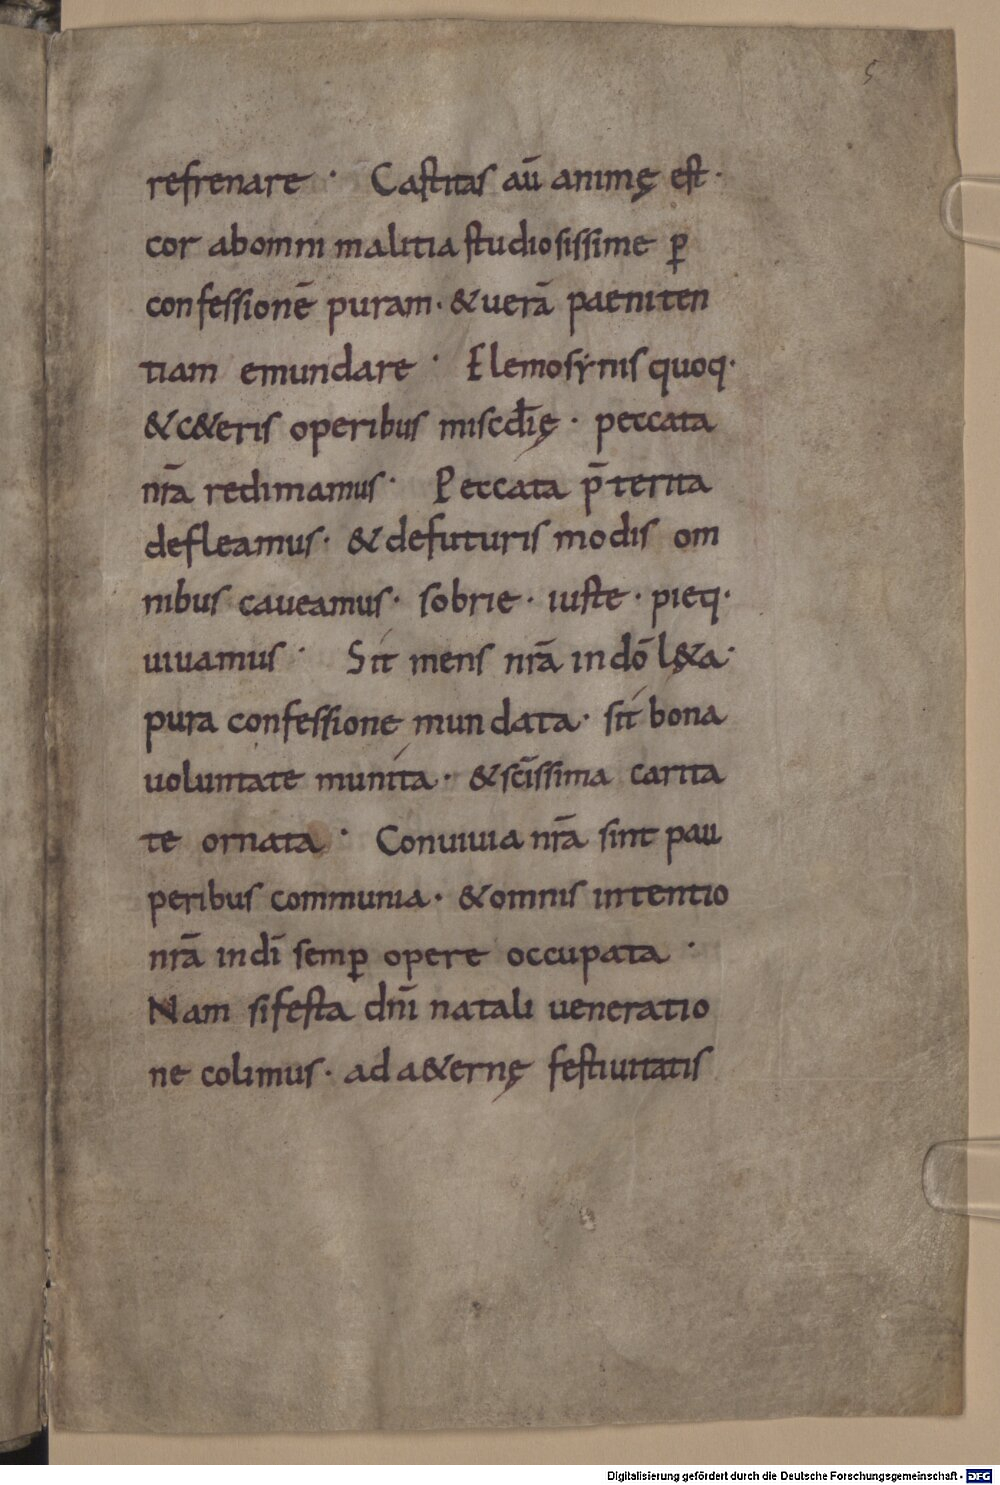 5
refrenare · Castitas aū animę est ·
cor abomni malitia studiosissime ꝑ
confessionē puram · & uerā paeniten
tiam emundare · Elemosẏnis quoq·
& c&eris operibus miscdīę · peccata
nr̄a redimamus · Peccata p̄terita
defleamus · & defuturis modis om
nibus caueamus · sobrie · iuste · pieq·
uiuamus · Sit mens nr̄a indō lę&a ·
pura confessione mundata · sit bona
uoluntate munita · & scīssima carita
te ornata · Conuiuia nr̄a sint pau
peribus communia · & omnis intentio
nr̄a indī semꝑ opere occupata ·
Nam si festa dn̄i natali ueneratio
ne colimus · ad a&ernę festiuitatis
Digitalisierung gefördert durch die Deutsche Forschungsgemeinschaft - DFG